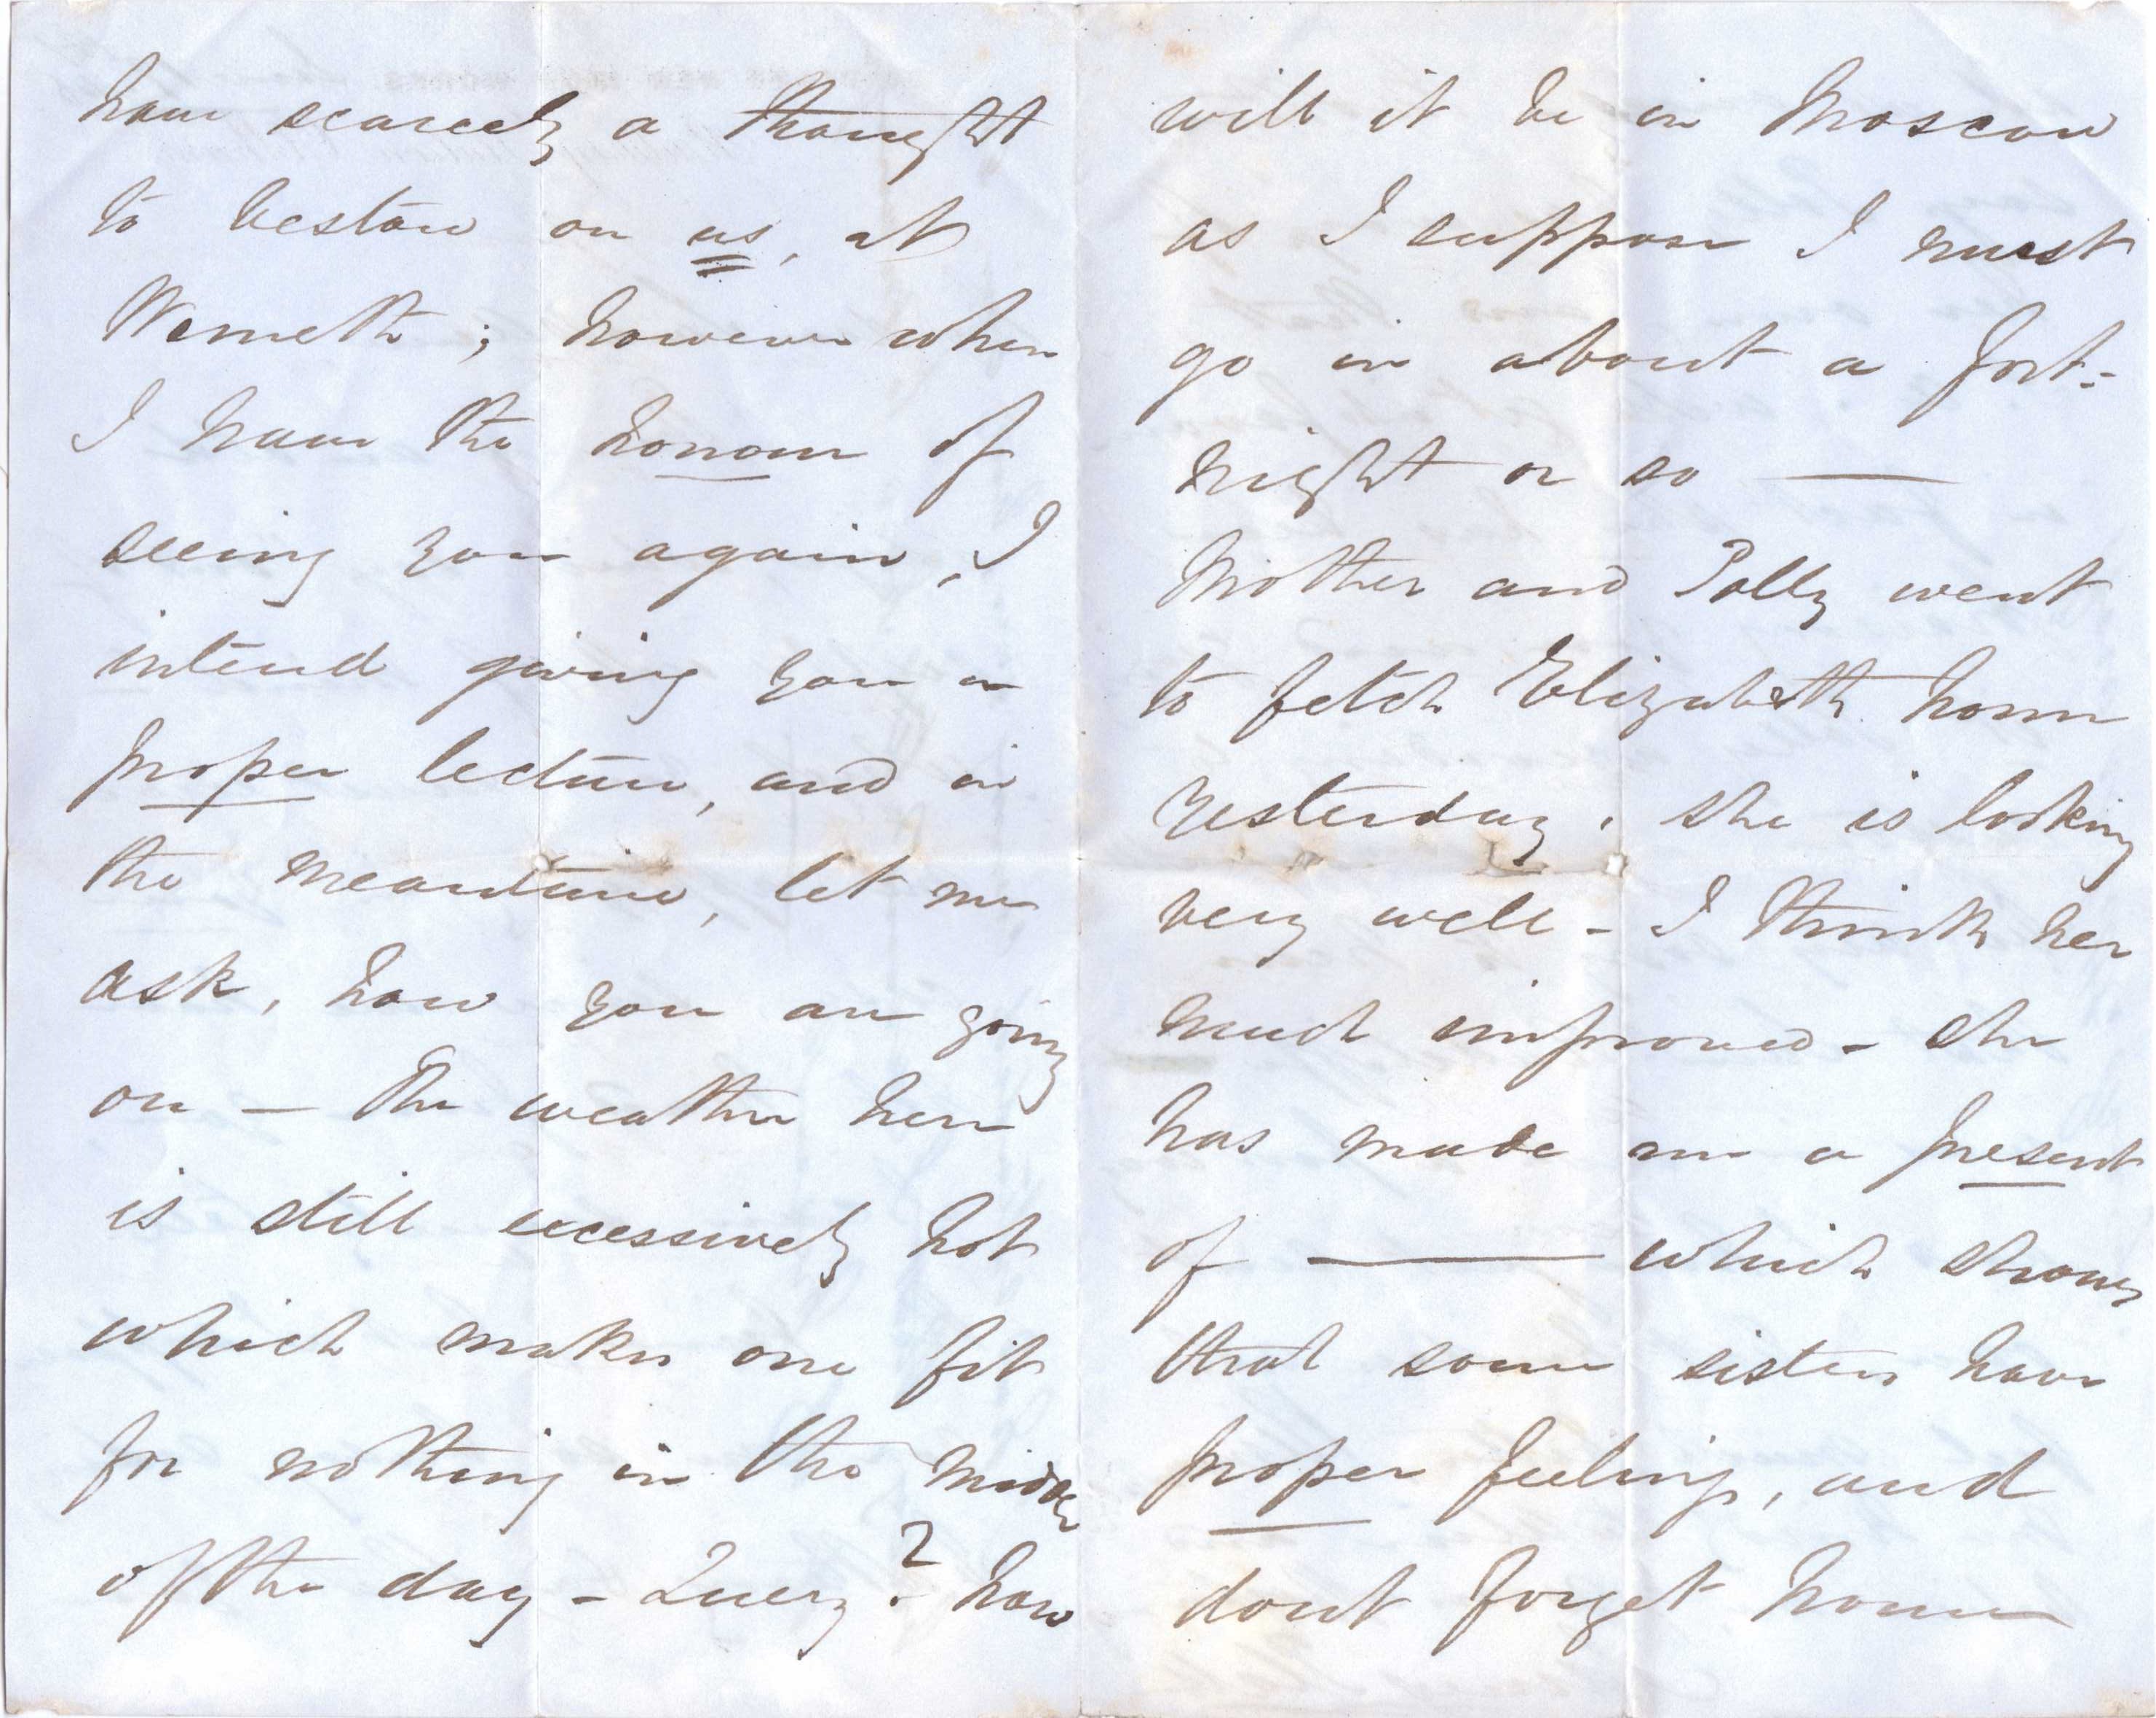 have scarcely a thought
to bestow on us, at
Werneth; however when
I have the honour of
seeing you again, I
intend giving you a
proper lecture, and in
the meantime, let me
ask, how you are going
on — The weather here
is still excessively hot
which makes one fit
for nothing in the middle
of the day - Query? how
will it be in Moscow
as I suppose I must
go in about a fort-
night or so —
Mother and Polly went
to fetch Elizabeth home
yesterday. she is looking
very well - I think her
much improved - she
has made me a present
of ——— which shows
that some sisters have
proper feelings, and
dont forget home